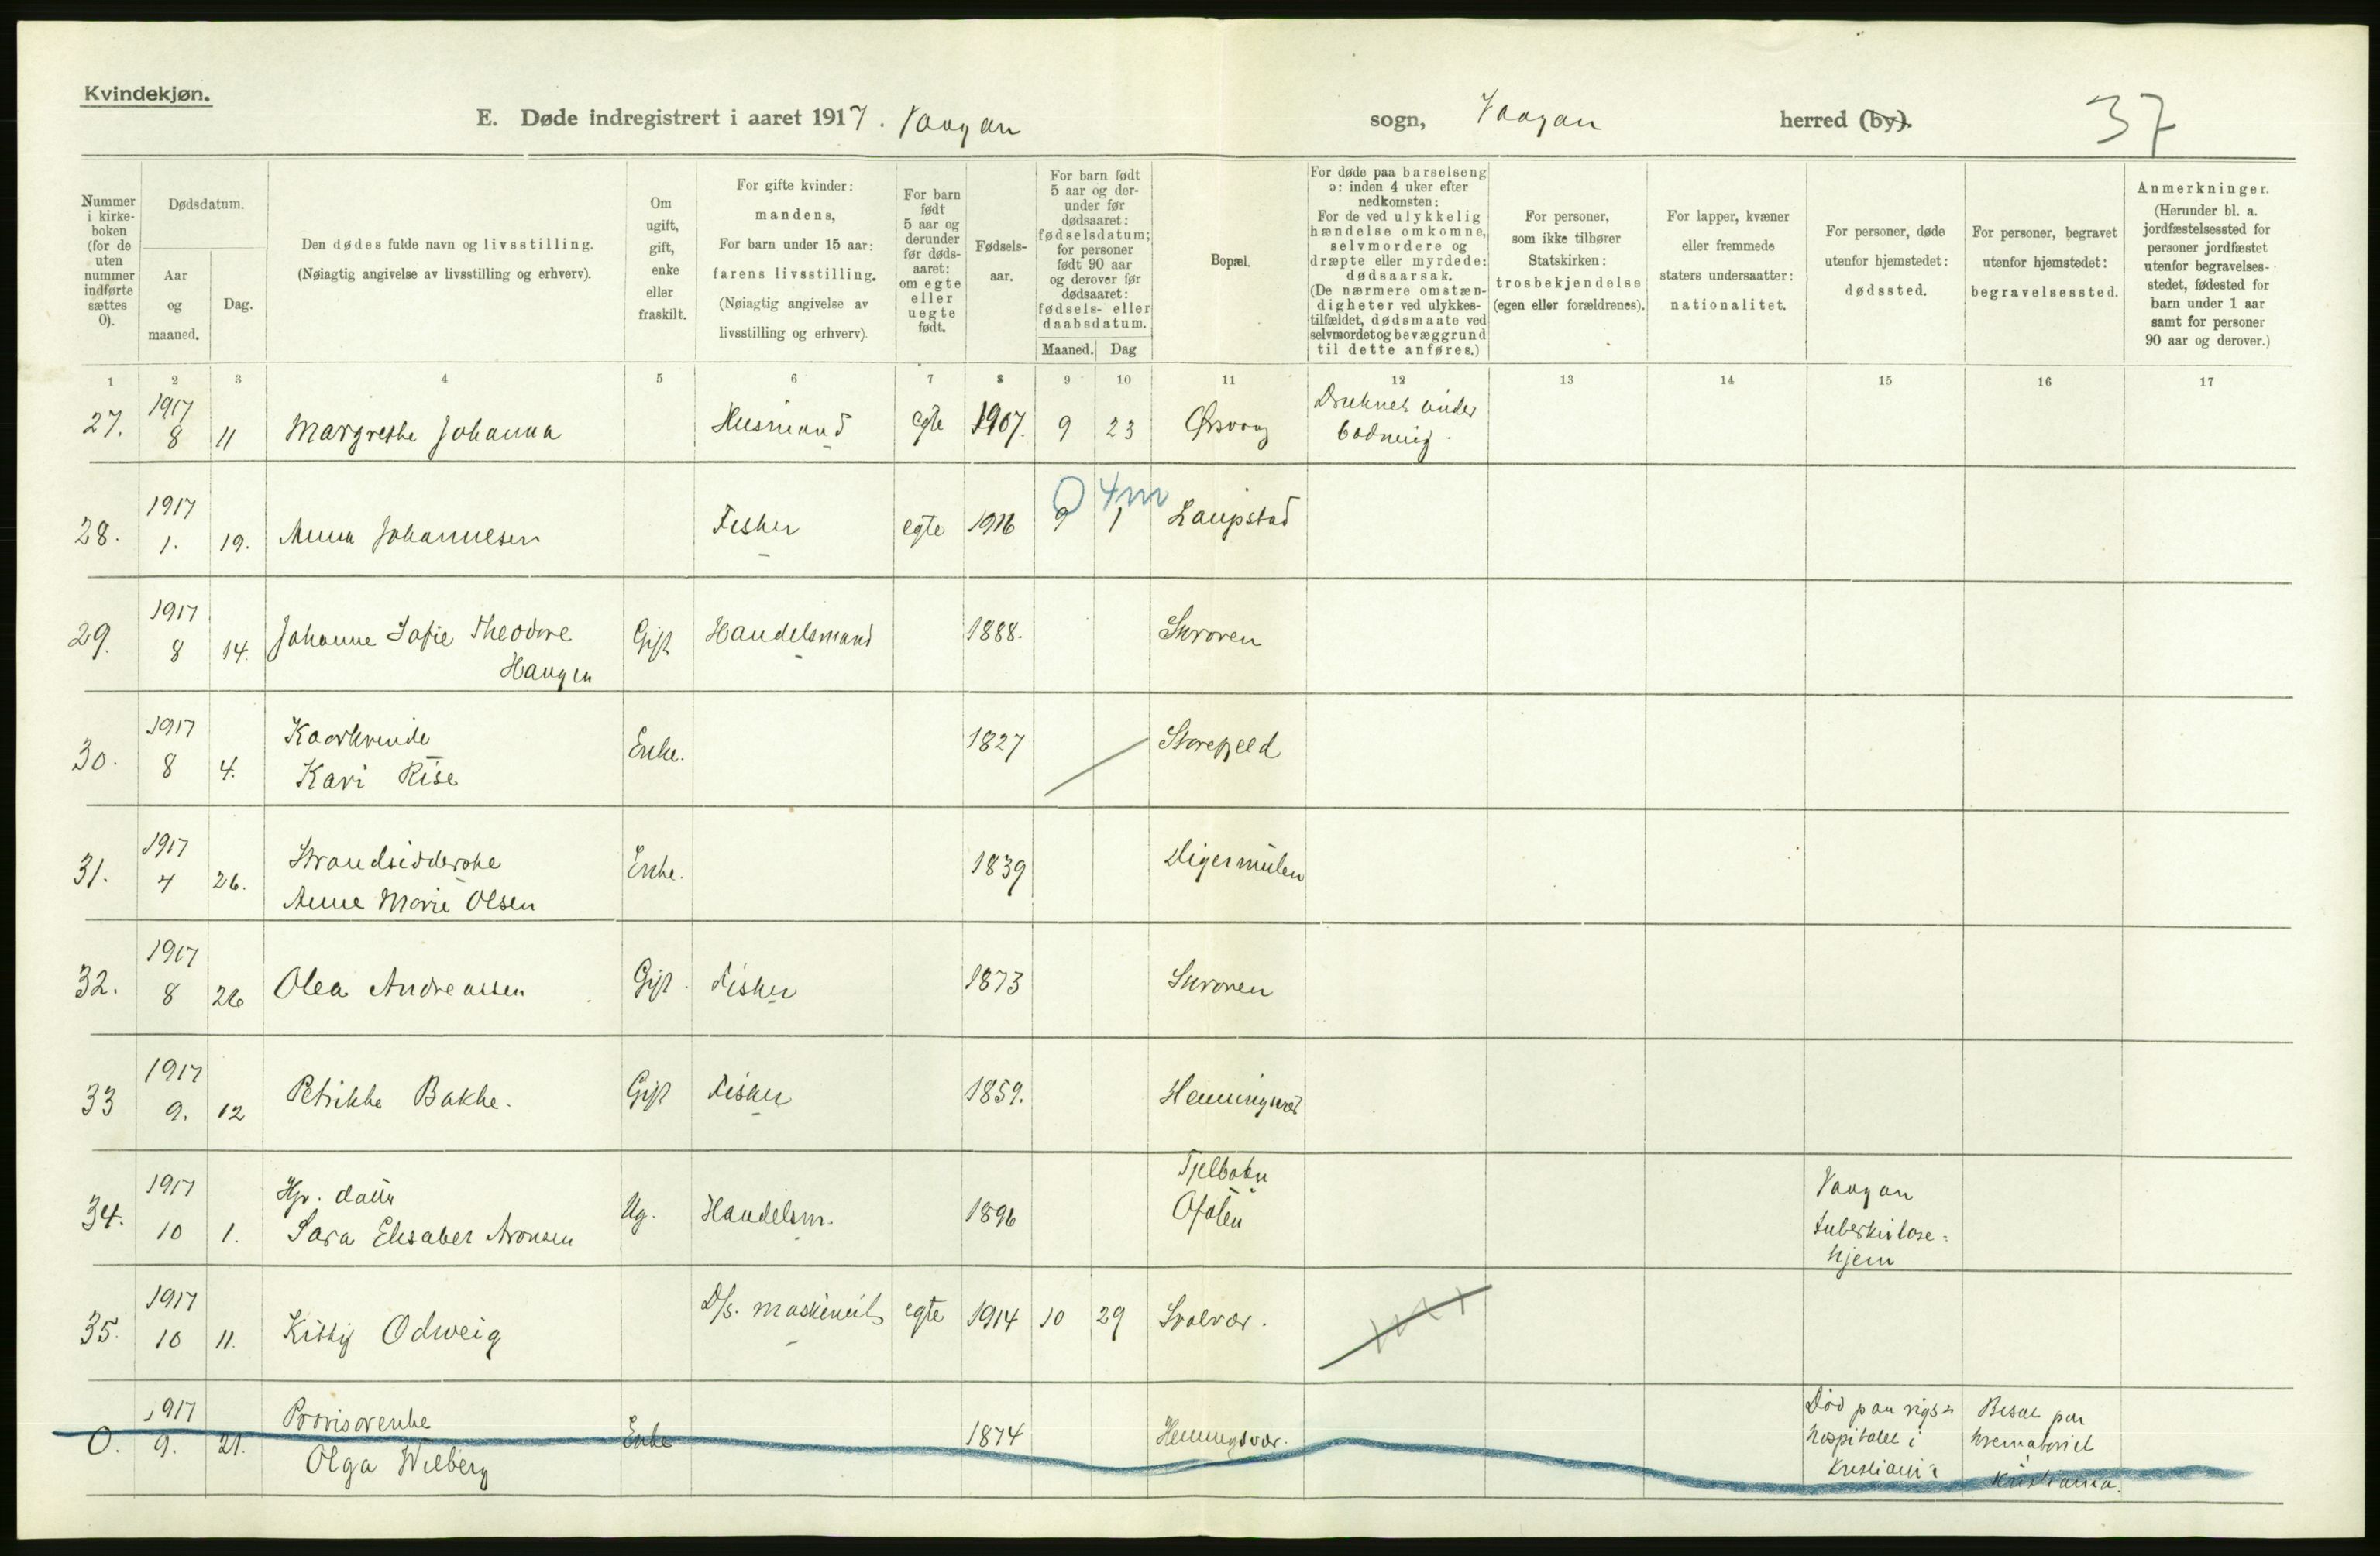 Kvindekjøn.
E. Døde indregistrert i aaret 1917. Vaagan sogn, Vaagan herred (by). 37
Nummer i kirke-boken (for de uten nummer indførte sættes 0).
Dødsdatum.
Aar og maaned.
Dag.
Den dødes fulde navn og livsstilling.
(Nøiagtig angivelse av livsstilling og erhverv).
Om ugift, gift, enke eller fraskilt.
For gifte kvinder:
mandens,
For barn under 15 aar:
farens livsstilling.
(Nøiagtig angivelse av
livsstilling og erhverv).
For barn født 5 aar og derunder før døds-aaret: om egte eller uegte født.
Fødsels-aar.
For barn født 5 aar og der-under før dødsaaret: fødselsdatum; for personer født 90 aar og derover før dødsaaret: fødsels- eller daabsdatum.
Maaned. Dag
Bopæl.
For døde paa barselseng
ɔ: inden 4 uker efter
nedkomsten:
For de ved ulykkelig
hændelse omkomne,
selvmordere og
dræpte eller myrdede:
dødsaarsak.
(De nærmere omstæn-
digheter ved ulykkes-
tilfældet, dødsmaate ved
selvmordet og bevæggrund
til dette anføres.)
For personer,
som ikke tilhører
Statskirken:
trosbekjendelse
(egen eller forældrenes).
For lapper, kvæner
eller fremmede
staters undersaatter:
nationalitet.
For personer, døde
utenfor hjemstedet:
dødssted.
For personer, begravet
utenfor hjemstedet:
begravelsessted.
Anmerkninger.
(Herunder bl. a.
jordfæstelsessted for
personer jordfæstet
utenfor begravelses-
stedet, fødested for
barn under 1 aar
samt for personer
90 aar og derover.)
1 2 3 4 5 6 7 8 9 10 11 12 13 14 15 16 17
27. 1917 8 11 Margrethe Johanna Husmand egte 1907. 9 23 Ørsvaag Druknet under
badning.
28. 1917 1. 19. Anna Johannesen Fisker egte 1916 9 1 Laupstad
0 4m
29. 1917 8 14. Johanne Sofie Theodore
Haugen Gift Handelsmand 1888. Skroven
30. 1917 8 4. Kaarkvinde
Kari Rise Enke. 1827 Storefjeld
31. 1917 4 26. Strandsidderske
Anne Marie Olsen Enke. 1839 Digermulen
32. 1917 8 26 Olea Andreassen Gift. Fisker 1873 Skroven
33 1917 9. 12 Petrikke Bakke. Gift Fisker 1859. Henningsvær
34. 1917 10 1. Hp. datter
Sara Elisabet Aronsen Ug. Handelsm. 1896 Tjelbotn
Ofoten Vaagan
tuberkulose-
hjem
35. 1917 10 11. Kitty Odveig D/s. maskinist egte 1914 10 29 Svolvær.
0. 1917 9. 21. Provisorenke
Olga Wiberg Enke 1874 Henningsvær. Død paa rigs-
hospitalet i
Kristiania Besat paa
krematoriet
Kristiania.